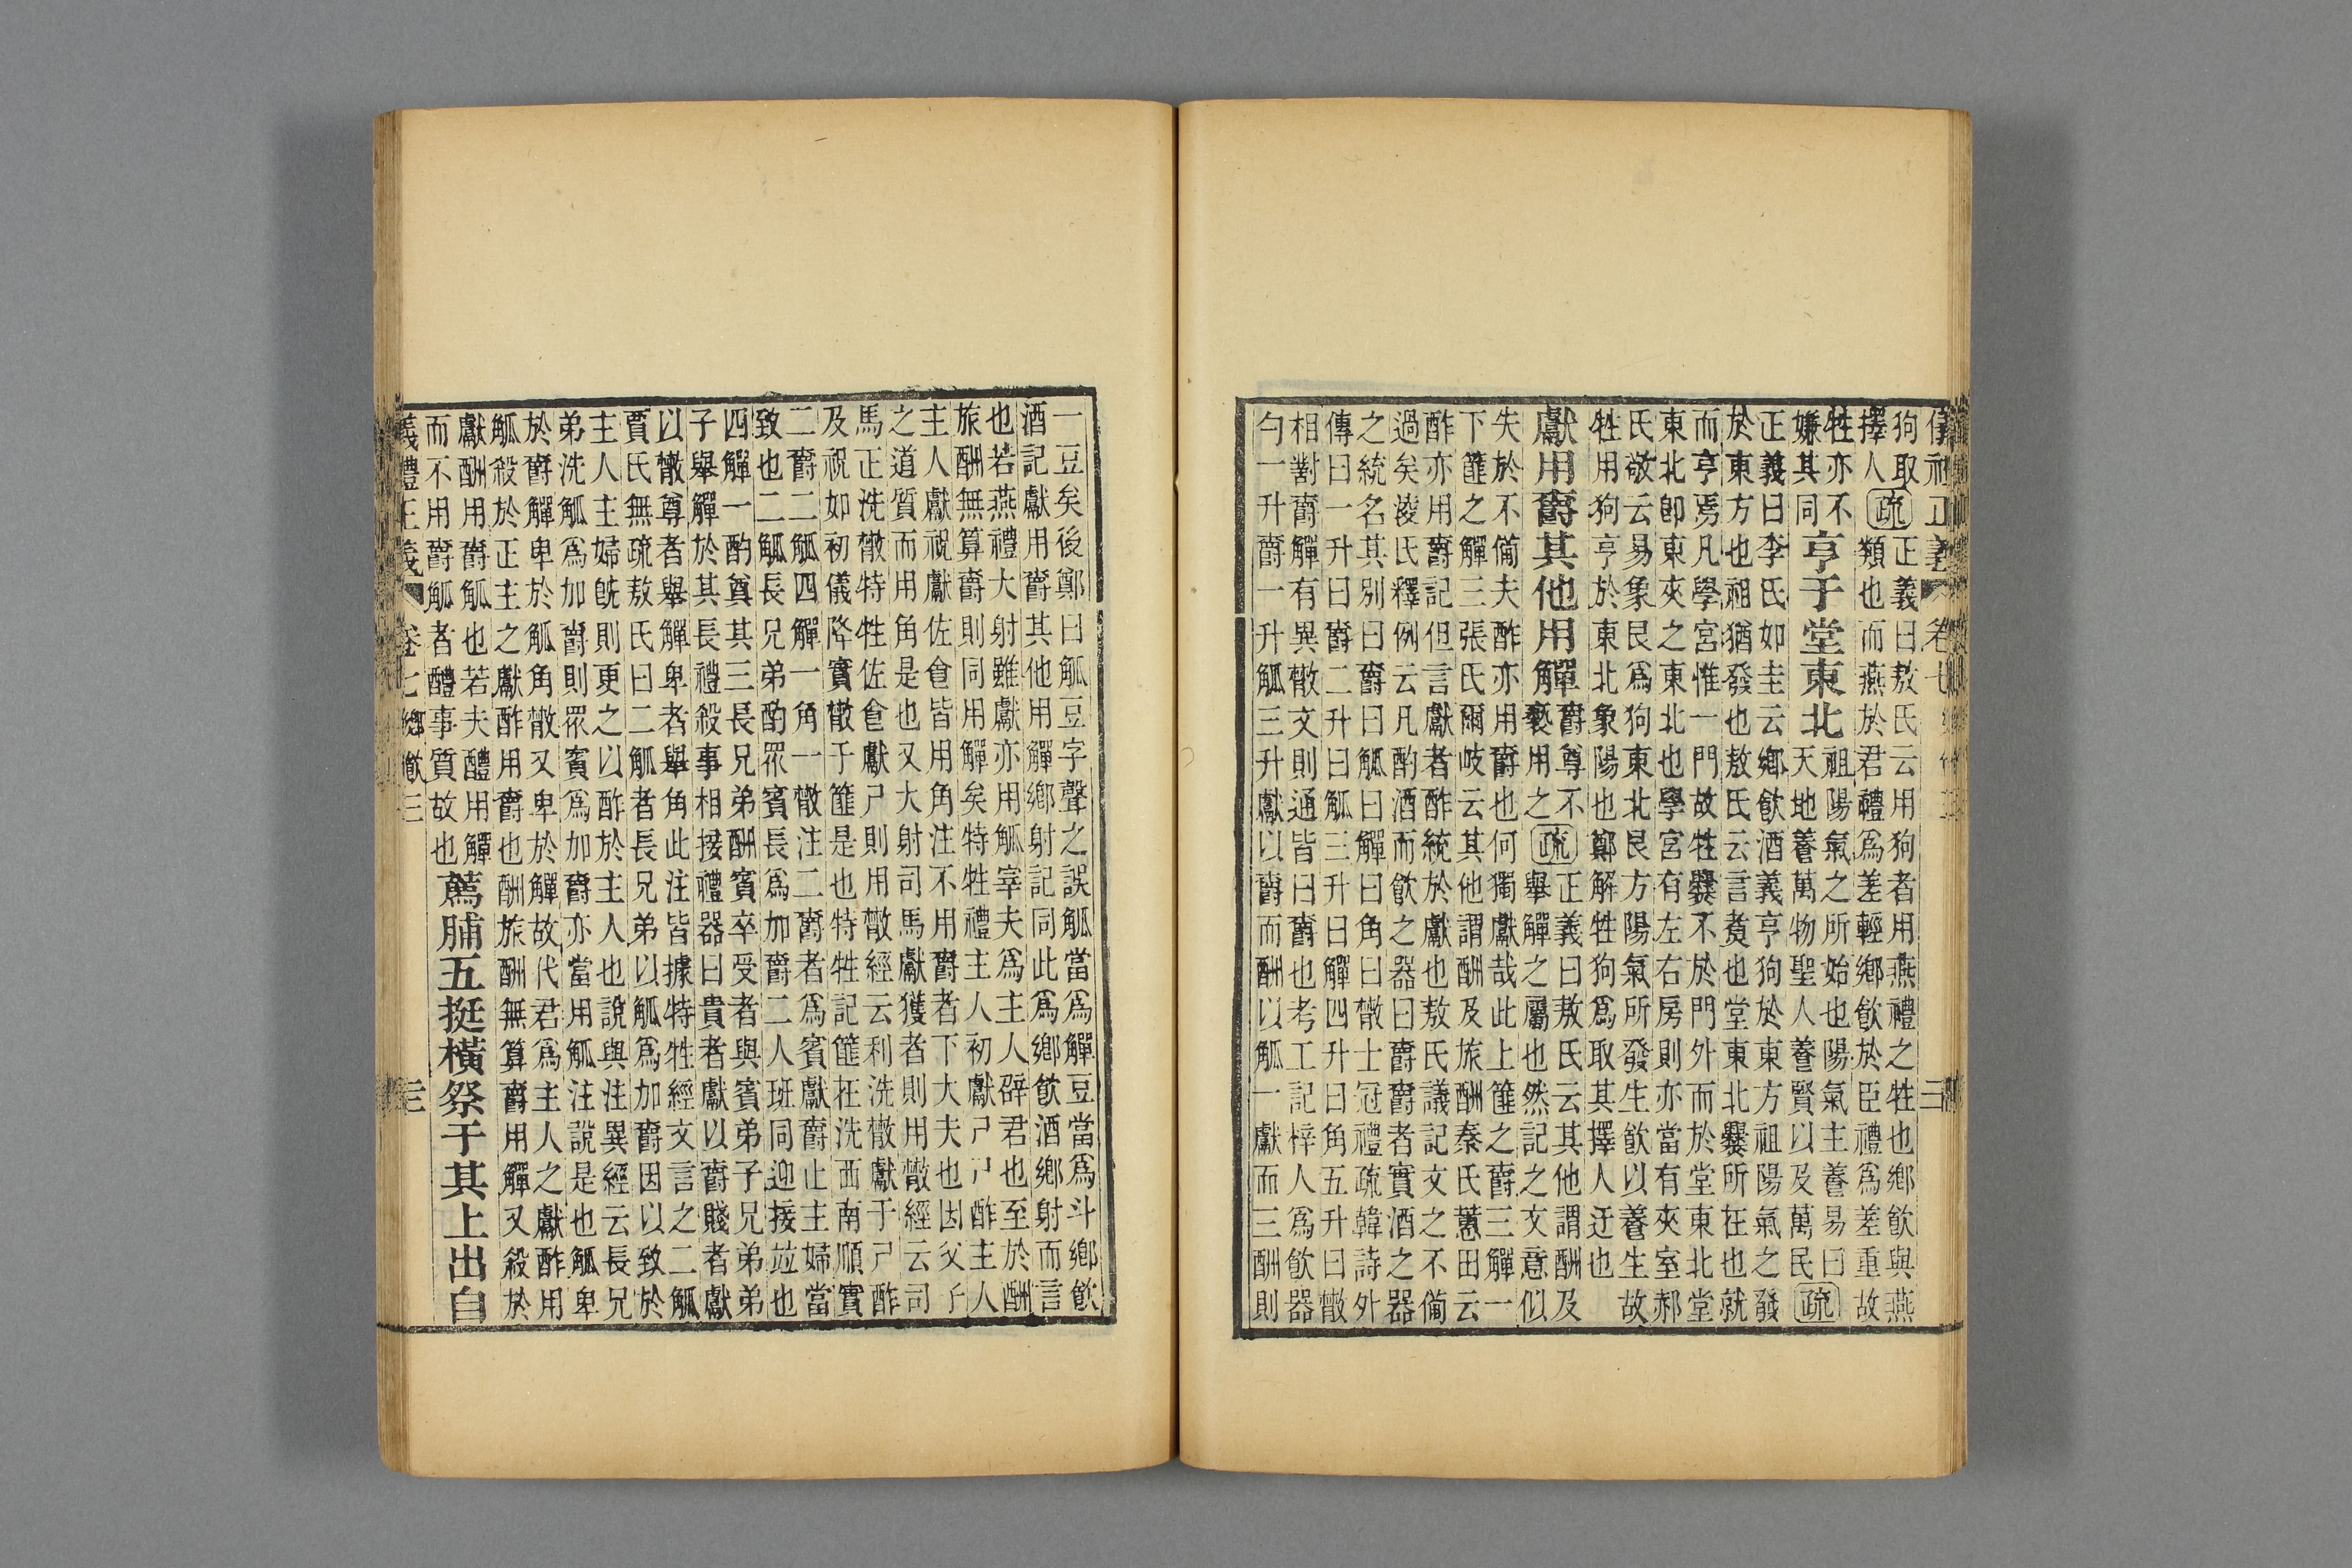 儀禮正義 卷七
狗取
擇人
疏
正義曰敖氏云用狗者用燕禮之牲也鄉飲與燕
類也而燕於君禮爲差輕鄉飲於臣禮爲差重故
牲亦不
嫌其同
亨于堂東北
祖陽氣之所始也陽氣主養易曰
天地養萬物聖人養賢以及萬民
疏
正義曰李氏如圭云鄉飲酒義亨狗於東方祖陽氣之發
於東方也祖猶發也敖氏云言煑也堂東北爨所在也就
而亨焉凡學宮惟一門故牲爨不於門外而於堂東北堂
東北卽東夾之東北也學宮有左右房則亦當有夾室郝
氏敬云易象艮爲狗東北艮方陽氣所發生飲以養生故
牲用狗亨於東北象陽也鄭解牲狗爲取其擇人迂也
獻用爵其他用觶
爵尊不
褻用之
疏
正義曰敖氏云其他謂酬及
舉觶之屬也然記之文意似
失於不備夫酢亦用爵也何獨獻哉此上篚之爵三觶一
下篚之觶三張氏爾岐云其他謂酬及旅酬秦氏蕙田云
酢亦用爵記但言獻者酢統於獻也敖氏議記文之不備
過矣淩氏釋例云凡酌酒而飲之器曰爵爵者實酒之器
之統名其別曰爵曰觚曰觶曰角曰散士冠禮疏韓詩外
傳曰一升曰爵二升曰觚三升曰觶四升曰角五升曰散
相對爵觶有異散文則通皆曰爵也考工記梓人爲飲器
勺一升爵一升觚三升獻以爵而酬以觚一獻而三酬則
一豆矣後鄭曰觚豆字聲之誤觚當爲觶豆當爲斗鄉飲
酒記獻用爵其他用觶鄉射記同此爲鄉飲酒鄉射而言
也若燕禮大射雖獻亦用觚宰夫爲主人辟君也至於酬
旅酬無算爵則同用觶矣特牲禮主人初獻尸尸酢主人
主人獻祝獻佐食皆用角注不用爵者下大夫也因父子
之道質而用角是也又大射司馬獻獲者則用散經云司
馬正洗散特牲佐食獻尸則用散經云利洗散獻于尸酢
及祝如初儀降實散于篚是也特牲記篚在洗西南順實
二爵二觚四觶一角一散注二爵者爲賓獻爵止主婦當
致也二觚長兄弟酌眾賓長爲加爵二人班同迎接竝也
四觶一酌奠其三長兄弟酬賓卒受者與賓弟子兄弟弟
子舉觶於其長禮殺事相接禮器曰貴者獻以爵賤者獻
以散尊者舉觶卑者舉角此注皆據特牲經文言之二觚
賈氏無疏敖氏曰二觚者長兄弟以觚爲加爵因以致於
主人主婦旣則更之以酢於主人也說與注異經云長兄
弟洗觚爲加爵則眾賓爲加爵亦當用觚注說是也觚卑
於爵觶卑於觚角散又卑於觶故代君爲主人之獻酢用
觚殺於正主之獻酢用爵也酬旅酬無算爵用觶又殺於
獻酬用爵觚也若夫醴用觶
而不用爵觚者醴事質故也
薦脯五挺橫祭于其上出自
義禮正義 卷七鄉飲三